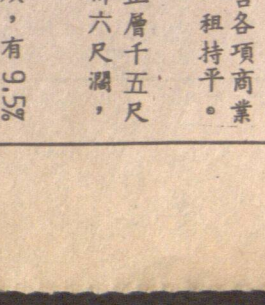 各項商業
租持平。
層千五尺
六尺濶，
，有 9.5%